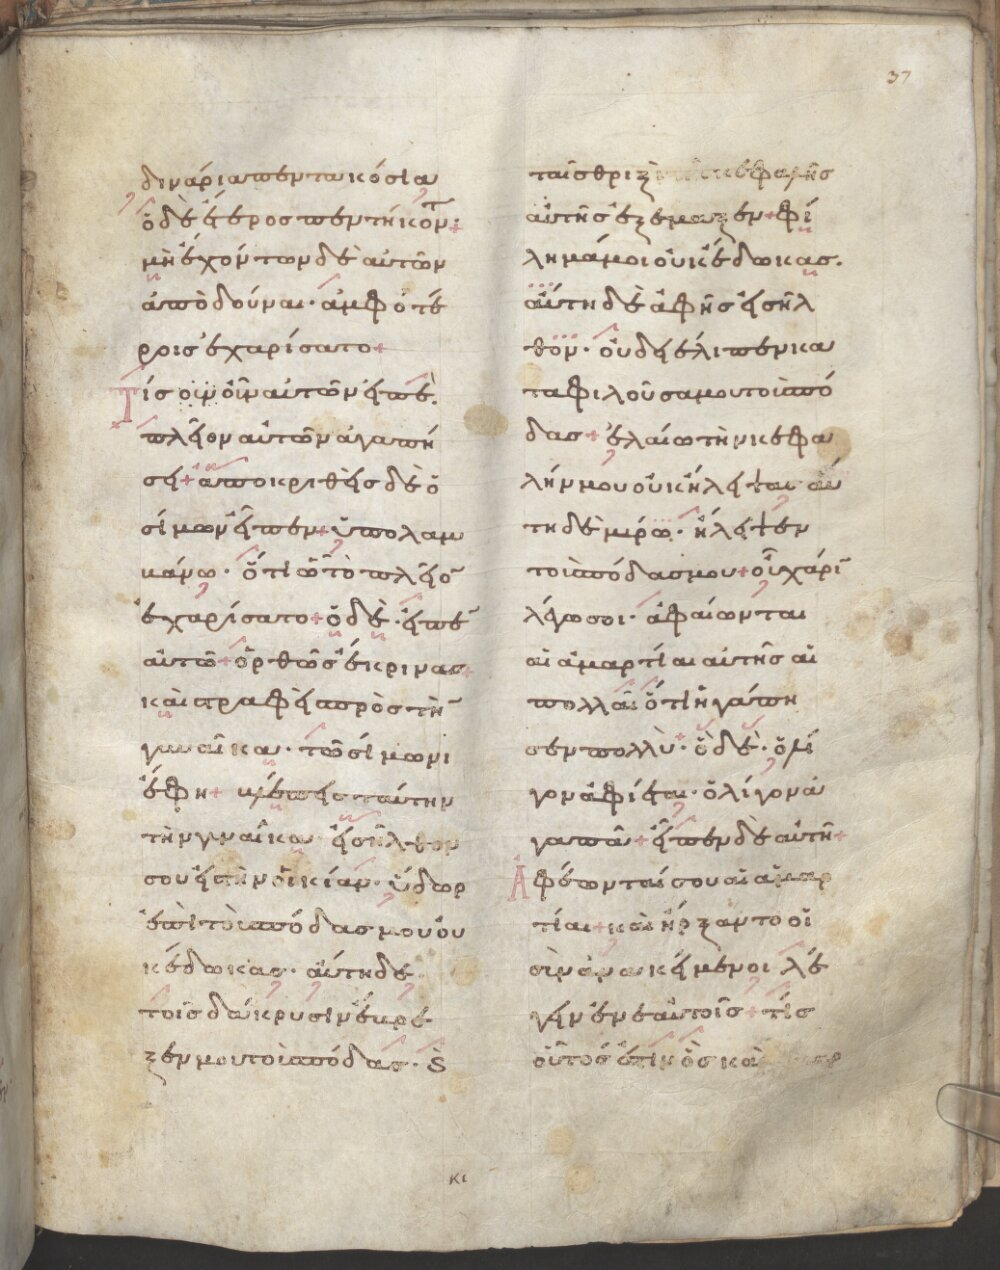 37
δινάρια πεντακόσια
ὁ δὲ ἕτερος πεντήκοντ+
μὴ ἐχόντων δὲ αὐτῶν
ἀποδοῦναι· ἀμφοτέ
ροις ἐχαρίσατο+
Τίς οὖν αὐτῶν εἰπὲ.
πλεῖον αὐτῶν ἀγαπή
σει+ ἀποκριθεὶς δὲ ὁ
σίμων εἶπεν+ ὑπολαμ
βάνω· ὅτι ὧ τὸ πλεῖο
ἐχαρίσατο+ ὁ δὲ· εἶπε
αὐτῶ+ ὀρθῶς ἔκρινας+
καὶ στραφεὶς πρὸς τὴ
γυναῖκα· τῶ σίμωνι
ἔφη+ βλέπεις ταύτην
τὴν γυναῖκα· εἰσῆλθον
σου εἰς τὴν οἰκίαν· ὕδωρ
ἐπὶ τοὺς πόδας μου οὐ
κ ἔδωκας· αὕτη δὲ
τοῖς δάκρυσιν ἔβρε
ξεν μου τοὺς πόδας· Ϛ
ταῖς θριξὶ κεφαλῆς
αὐτῆς ἐξέμαξεν+ φί
λημά μοι οὐκ ἔδωκας·
αὕτη δὲ ἀφ ῆς εἰσῆλ
θον· οὐ διέλιπεν κα
ταφιλοῦσα μου τοὺς πό
δας+ ἐλαίω τὴν κεφα
λήν μου οὐκ ἤλειψας αὕ
τη δὲ μύρω· ἤλειψεν
τοὺς πόδας μου+ οὗ χάρι
λέγω σοι· ἀφαίωνται
αἱ ἁμαρτίαι αὐτῆς αἱ
πολλαὶ ὅτι ἠγάπη
σεν πολλὺ· ὁ δὲ· ὀλί
γον ἀφίεται· ὀλίγον ἀ
γαπᾶ+ εἶπεν δὲ αὐτῆ+
Ἀφέωνταί σου αἱ ἁμαρ
τίαι+ καὶ ἤρξαντο οἱ
συνανακείμενοι λέ
γειν ἐν ἑαυτοῖς+ τίς
οὗτος ἐστὶν ὃς καὶ
κι